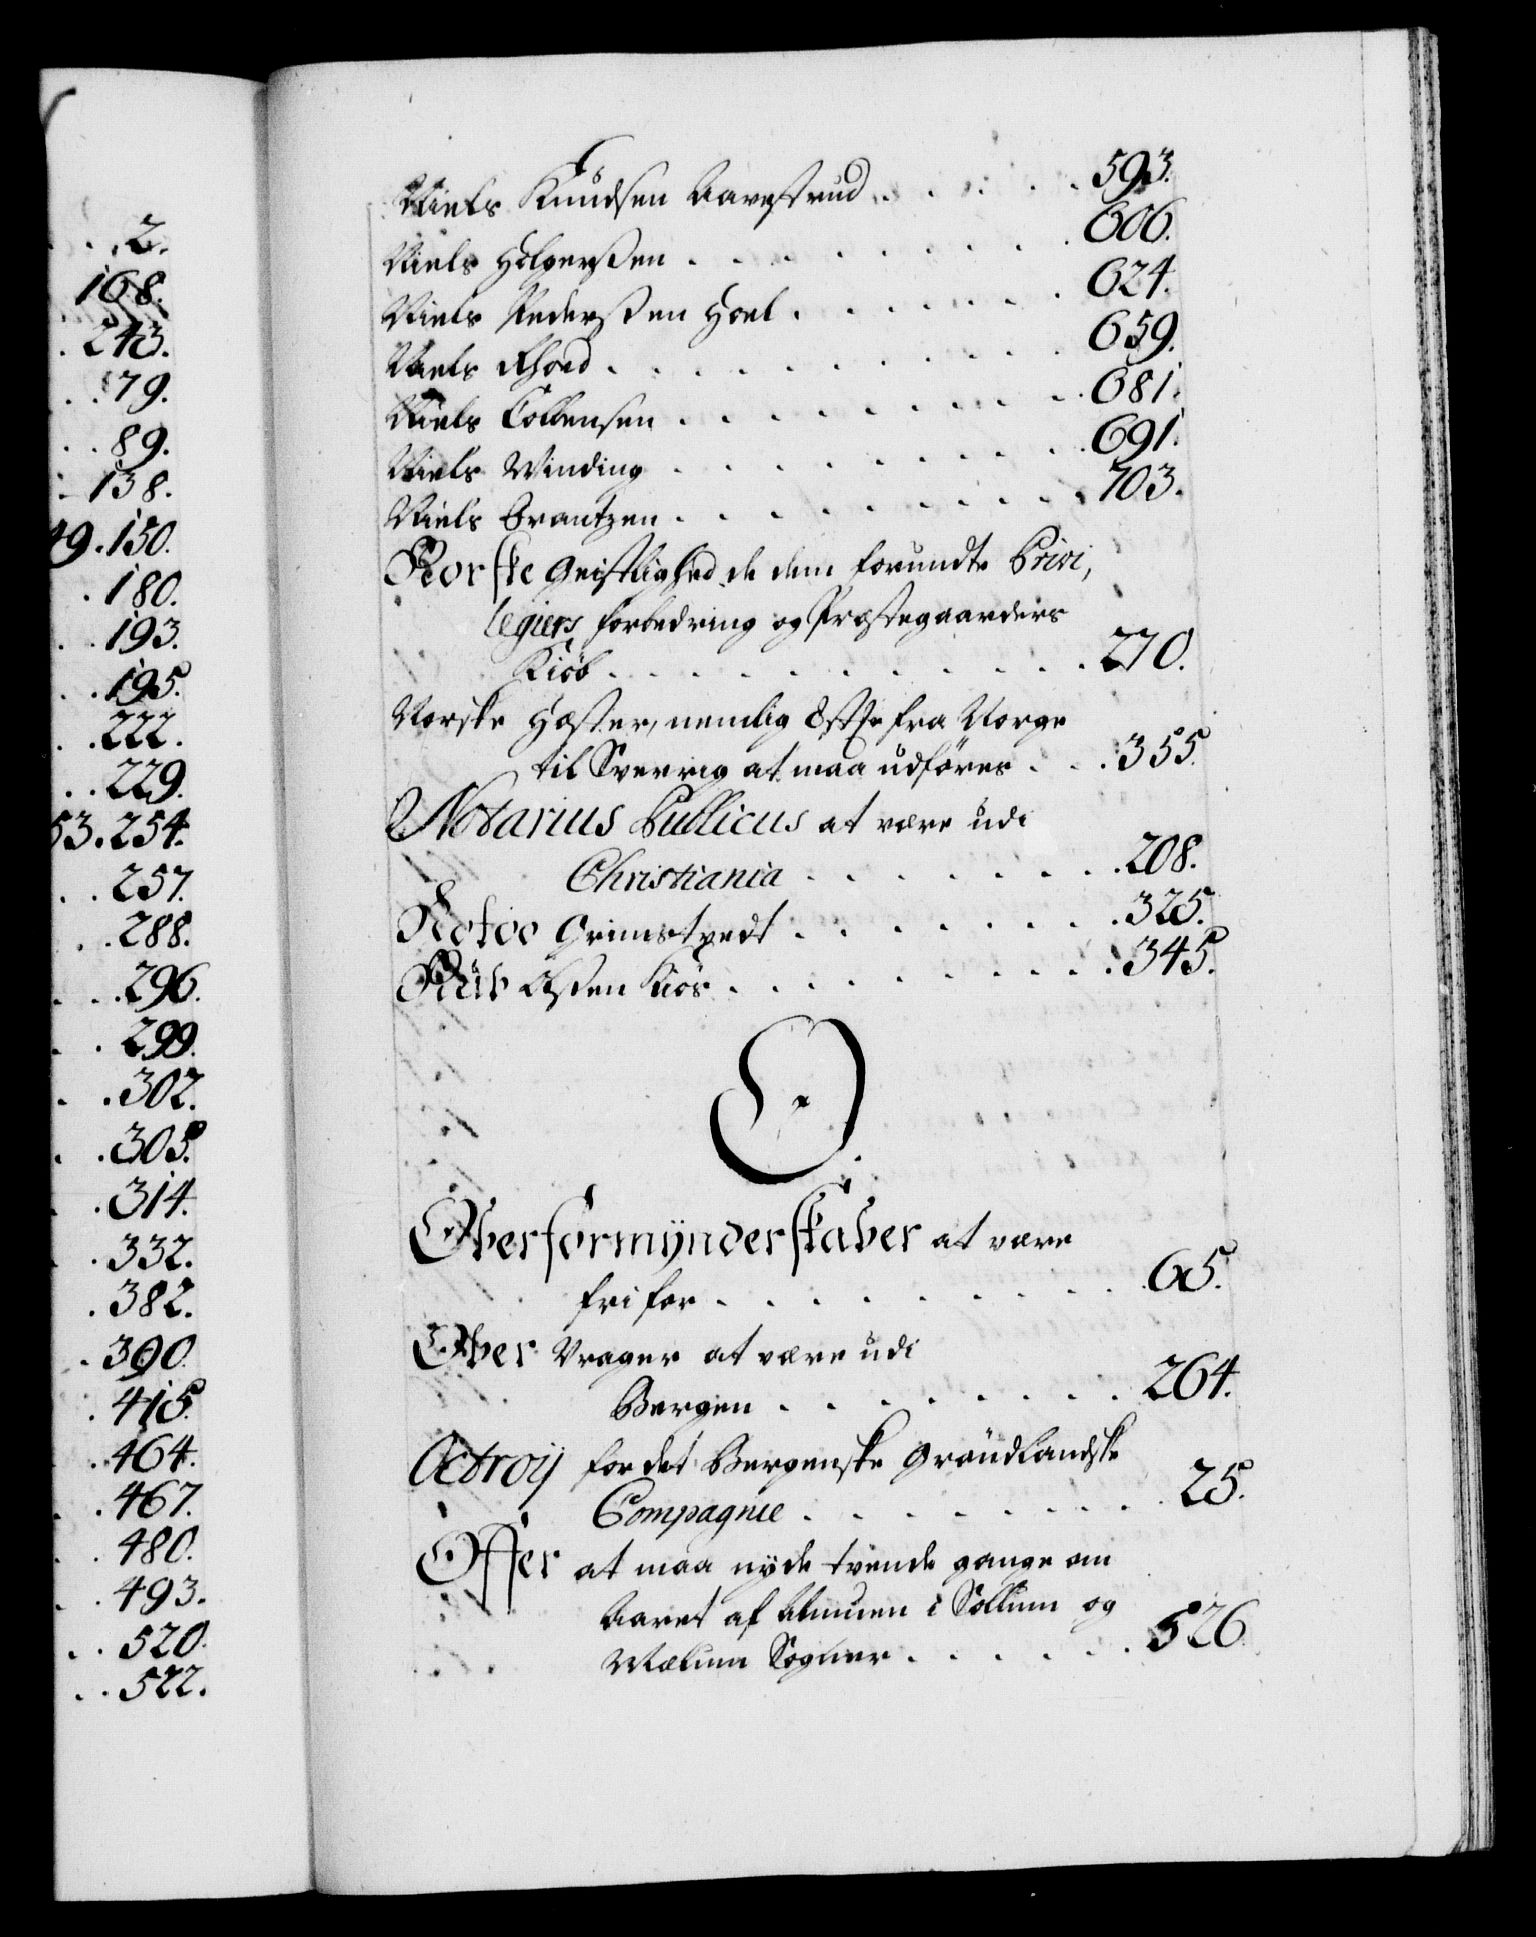 2.
168.
243.
79.
89.
138.
49. 150.
180.
193.
195.
222.
229.
53. 254.
257.
288.
296.
299.
302.
305.
314.
332.
382.
390.
415.
464.
467.
480.
493.
520.
522.
Niels Knudsen Aarestrud . . . . . 593.
Niels Holgerssen . . . . . . . . 606.
Niels Pederssen Hoel . . . . . . 624.
Niels Rhoed . . . . . . . . . . 659.
Niels Collensen . . . . . . . . . 681.
Niels Winding . . . . . . . . . 691.
Niels Brantzen . . . . . . . . . 703.
Norske Geistlighed de dem forundte Privi,
legiers forbedring og Præstegaarders
Kiöb . . . . . . . . . . 270.
Norske Hæster, nemlig fra Norge
til Sverrig at maa udföres . . . 355.
Notarius Publicus at være udi
Christiania . . . . . . . 208.
Notoe Grimstvedt . . . . . . . 325.
Nüb Assen Kiös . . . . . . . . 345.
O.
Oberformÿnderskaber at være
fri for . . . . . . . . . 65.
Ober Vrager at være udi
Bergen . . . . . . . 264.
Octroÿ for det Bergenske Gröndlandske
Compagnie . . . . . . . 25.
Offer at maa nÿde tvende gange om
Aaret af Almuen i Sollum og
Mælum Sogner . . . . . 526.